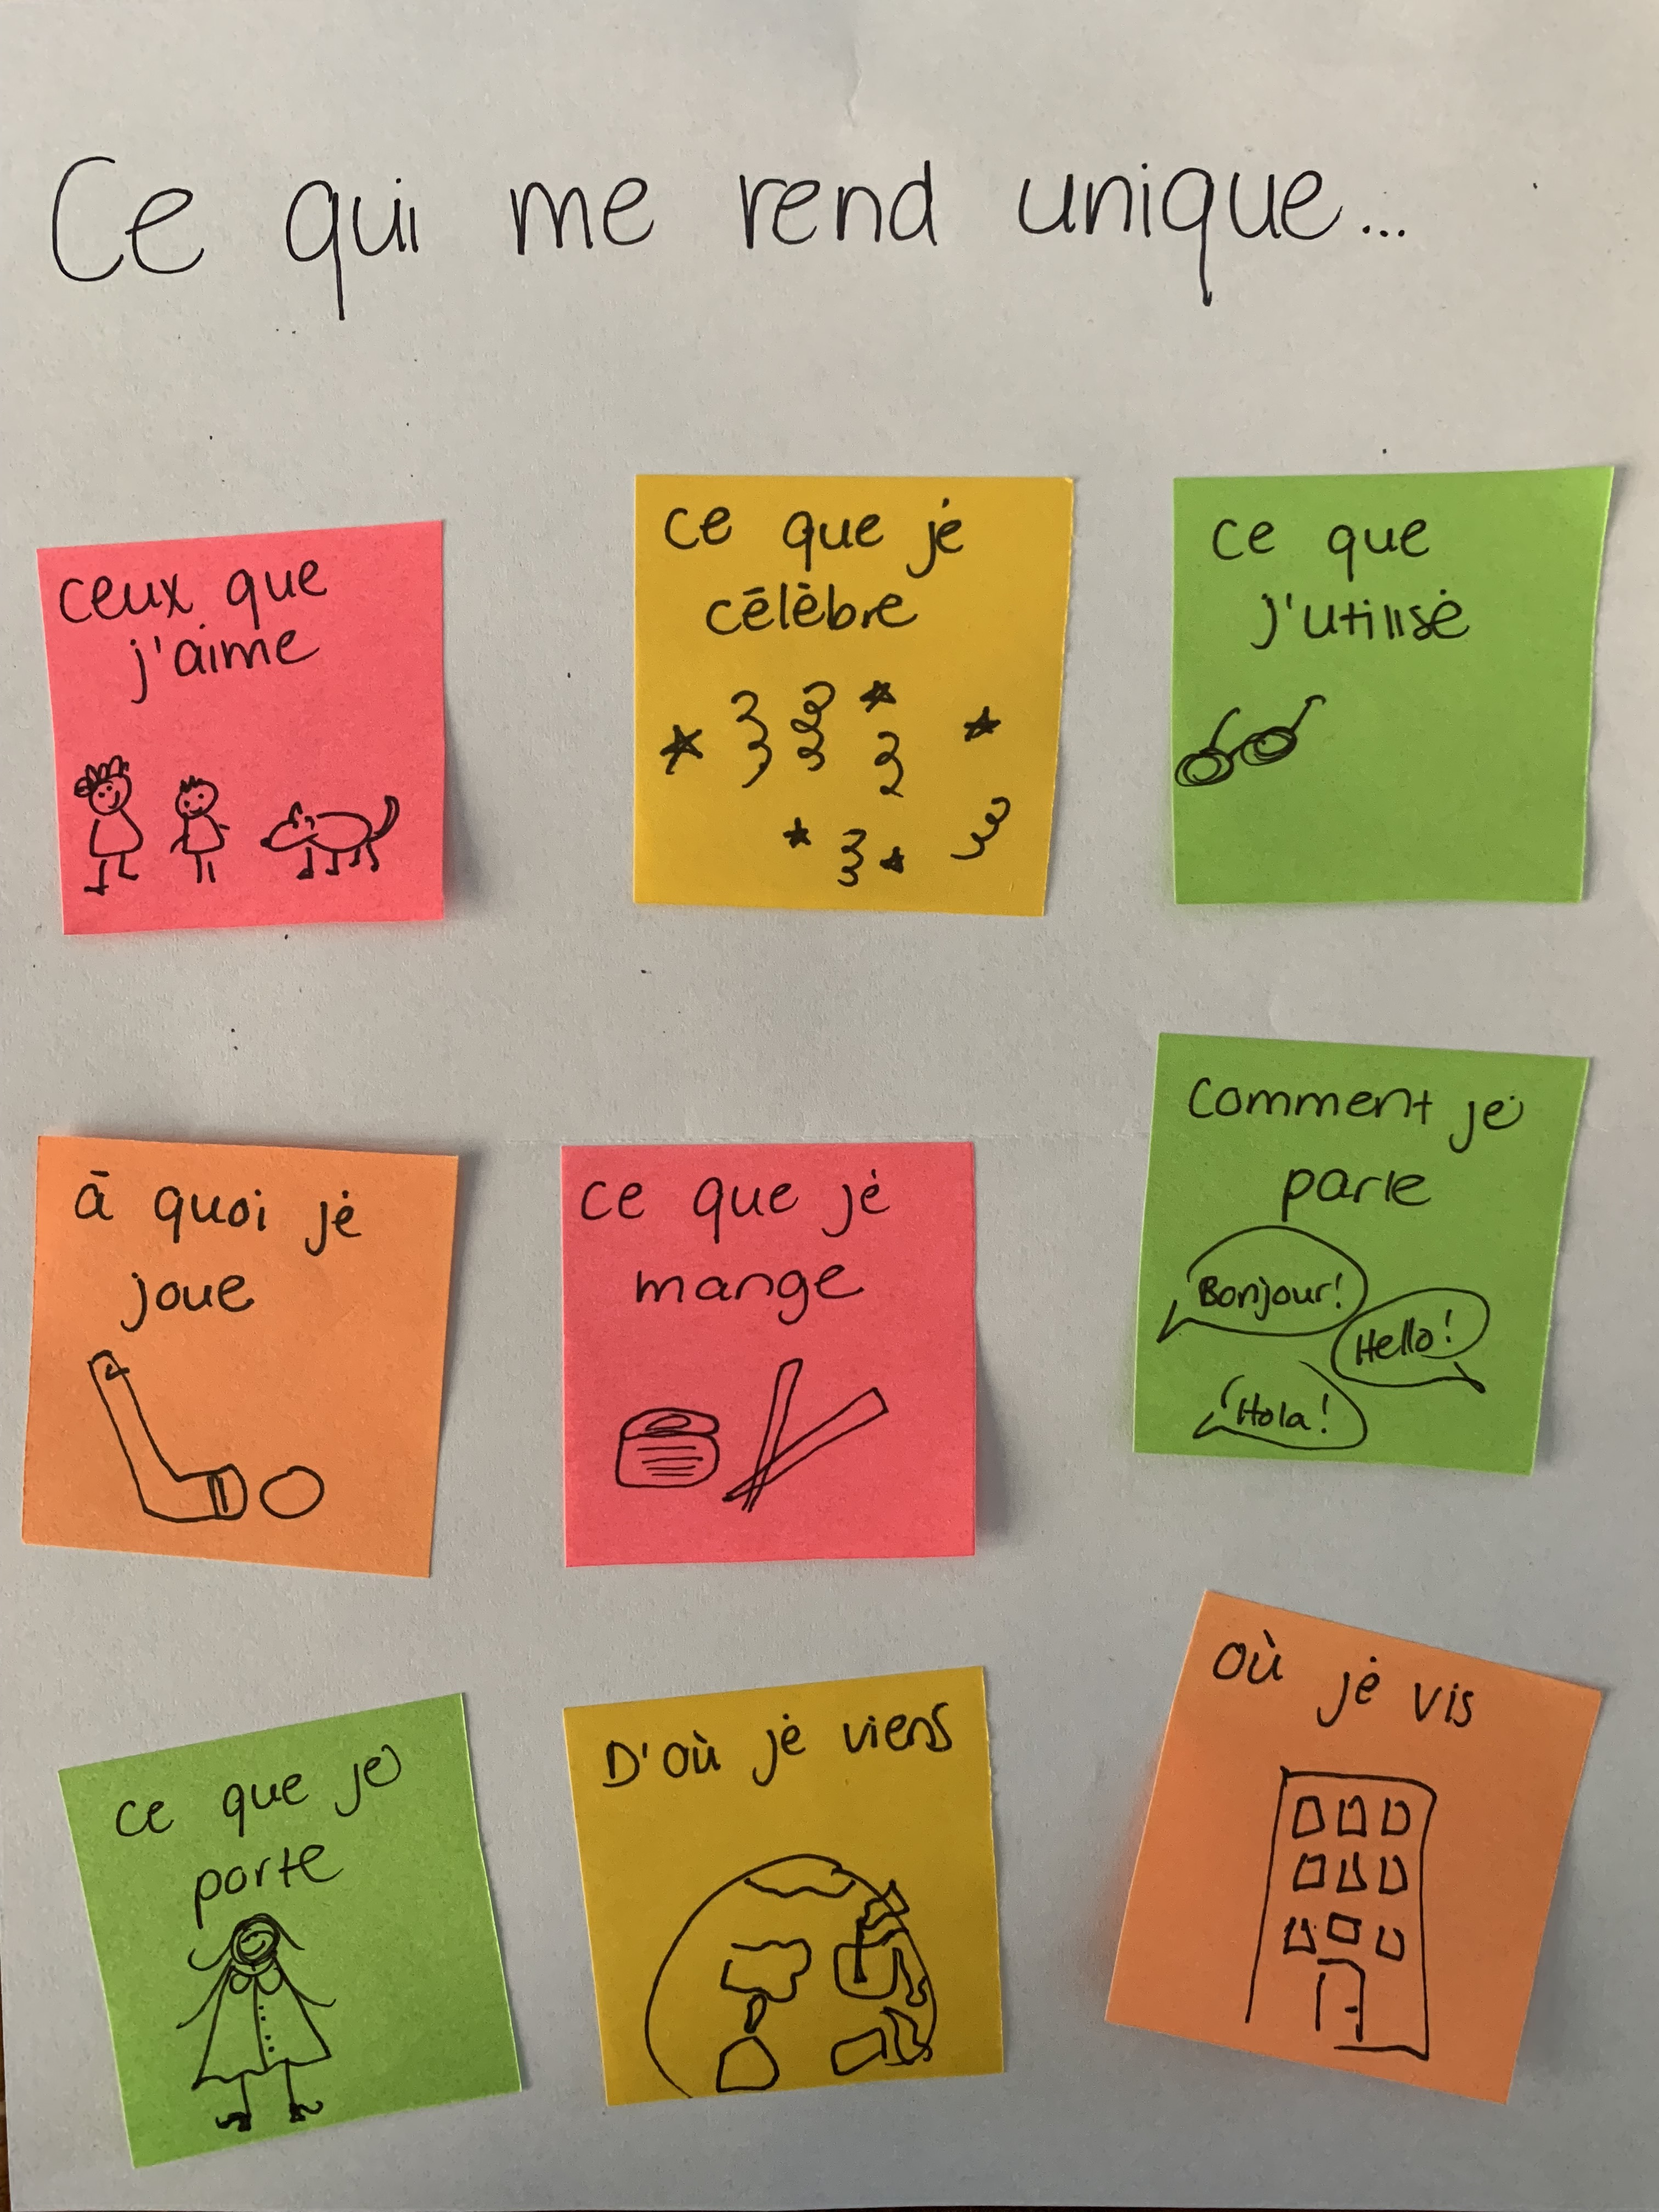 Ce qui me rend unique...
ceux que
j'aime
ce que je
célèbre
ce que
j'utilise
à quoi je
joue
ce que je
mange
comment je
parle
Bonjour!
Hello!
Hola!
ce que je
porte
D'où je viens
où je vis